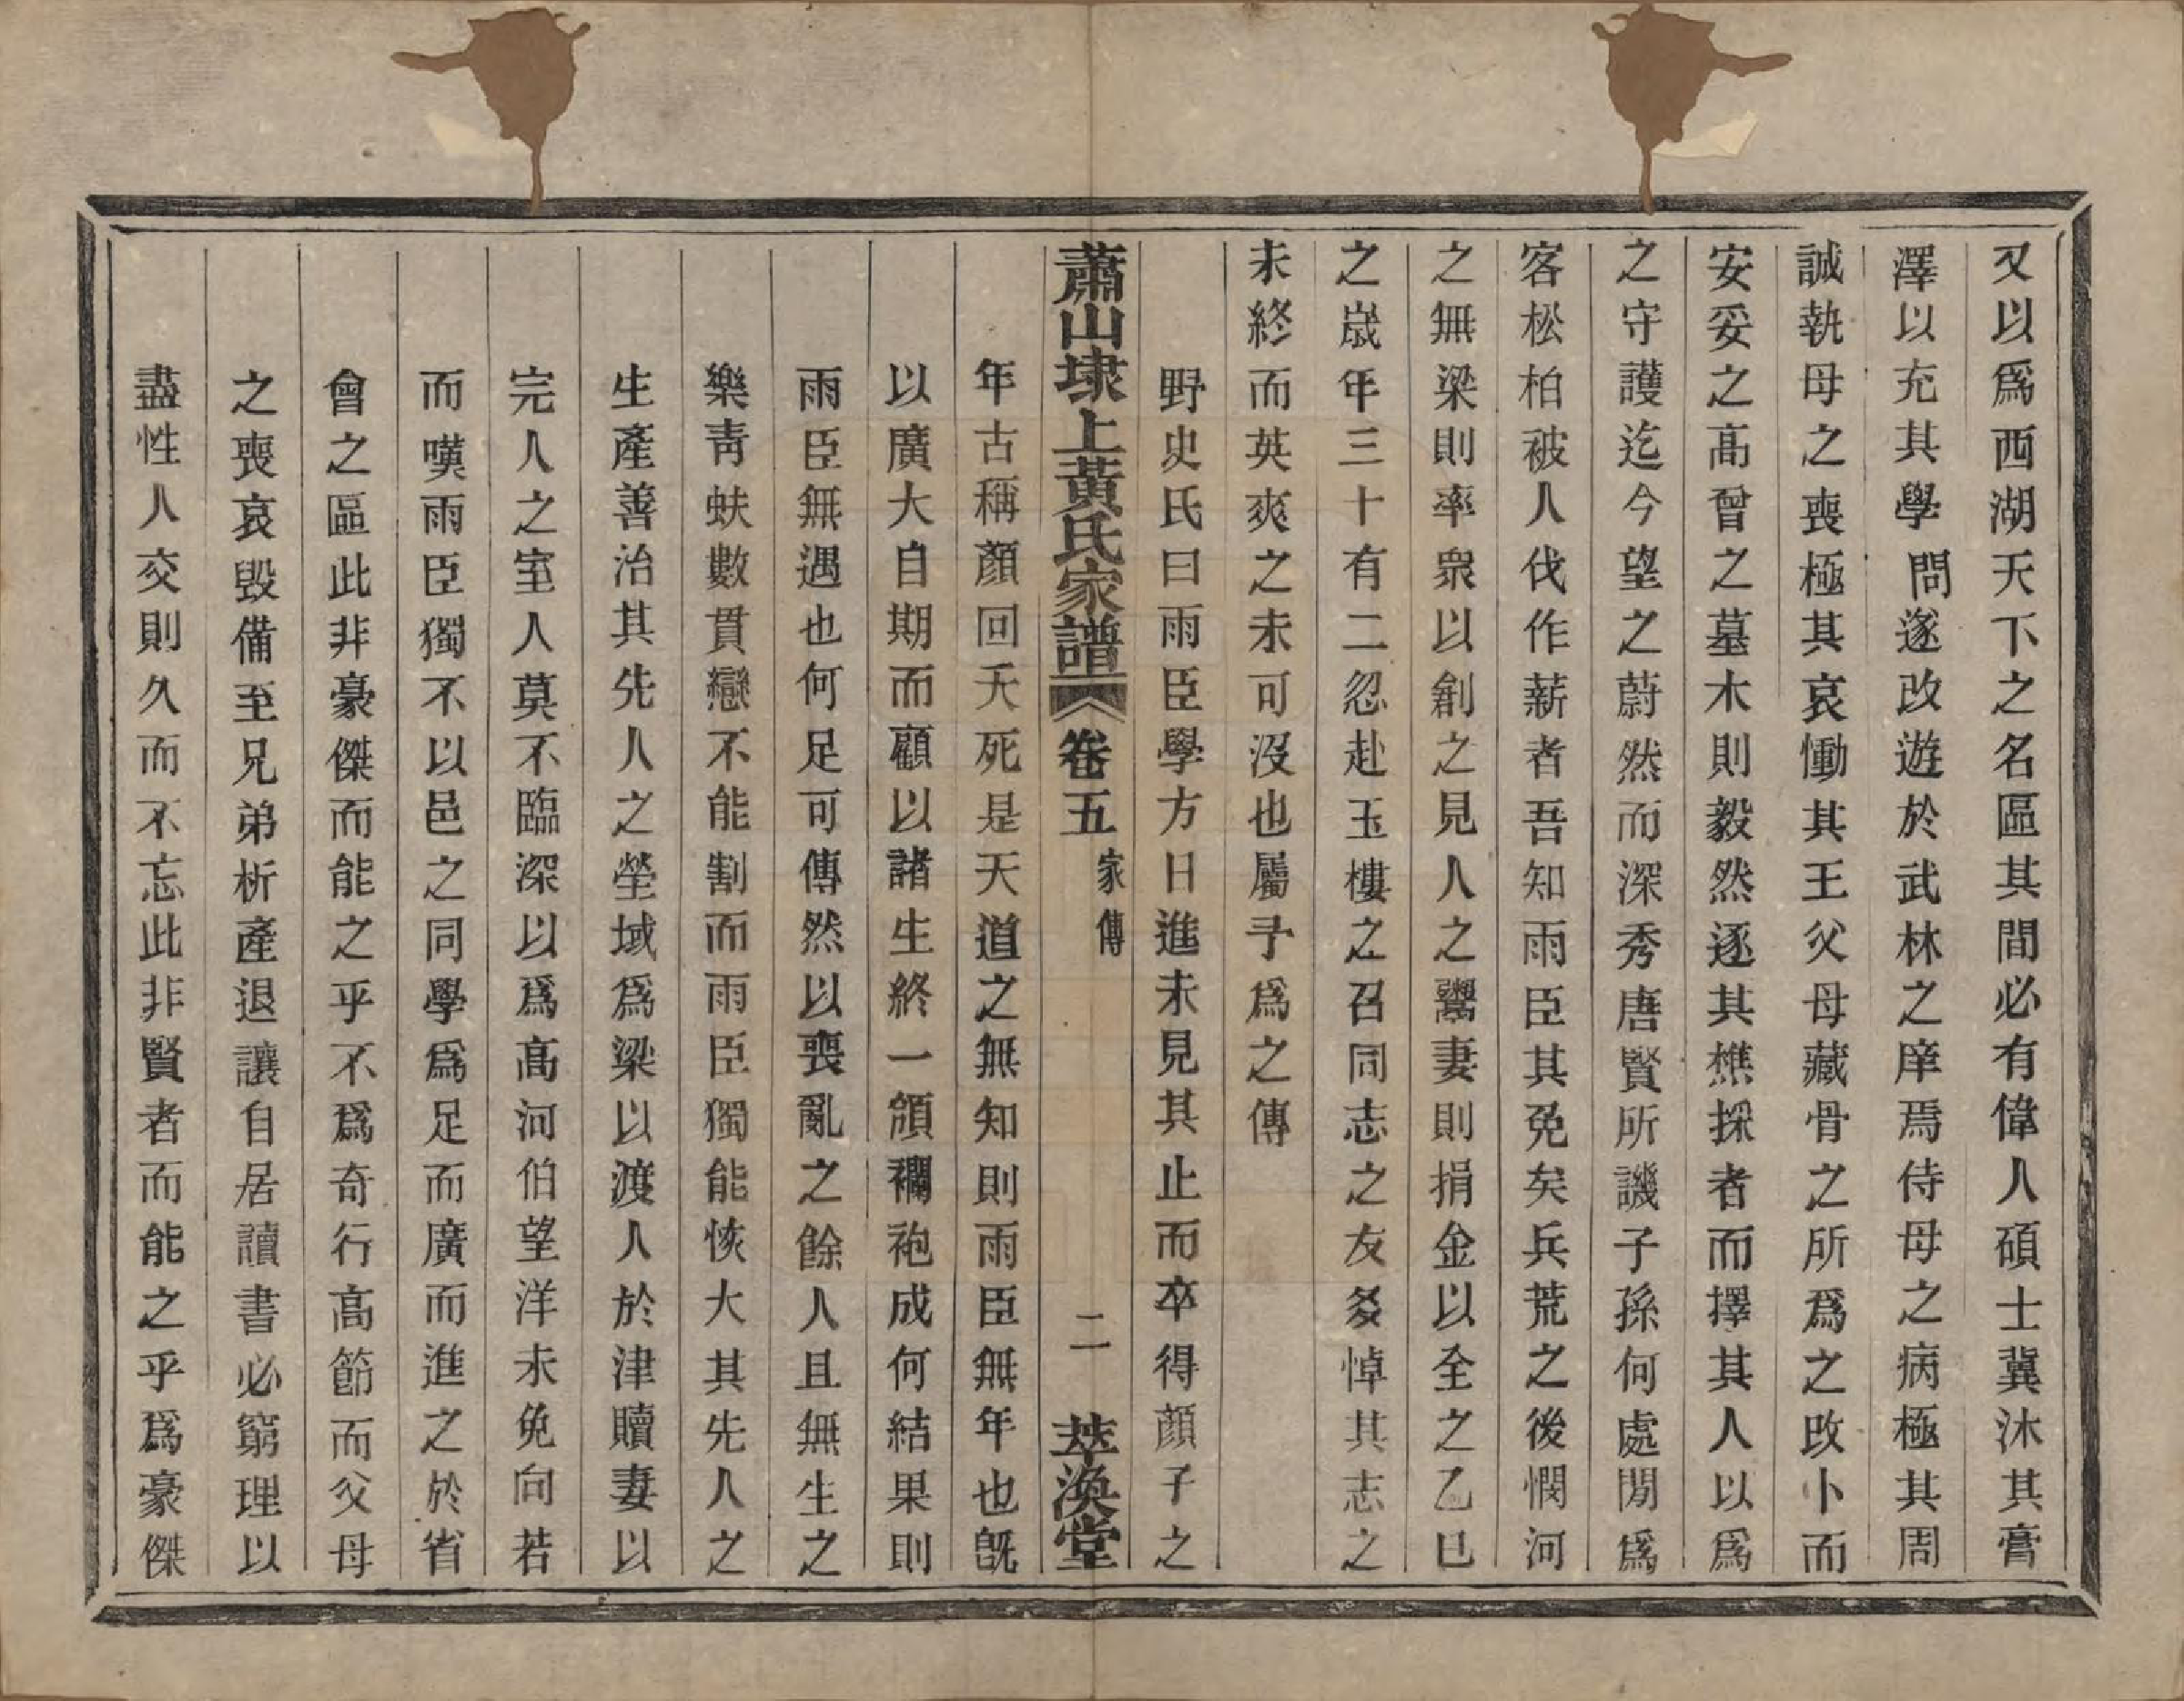 又以爲西湖天下之名區其間必有偉人碩士冀沐其膏
澤以充其學問遂改遊於武林之庠焉侍母之病極其周
誠執母之喪極其哀慟其王父母藏骨之所爲之改卜而
安妥之高曾之墓木則毅然逐其樵採者而擇其人以爲
之守護迄今望之蔚然而深秀唐賢所譏子孫何處閒爲
客松柏被人伐作薪者吾知雨臣其免矣兵荒之後憫河
之無梁則率衆以創之見人之鬻妻則捐金以全之乙巳
之歲年三十有二忽赴玉樓之召同志之友爰悼其志之
未終而英爽之未可沒也屬予爲之傳
野史氏曰雨臣學方日進未見其止而卒得顏子之
蕭山埭上黃氏家譜 卷五 家傳 二 萃渙堂
年古稱顏回夭死是天道之無知則雨臣無年也旣
以廣大自期而顧以諸生終一領襴袍成何結果則
雨臣無遇也何足可傳然以喪亂之餘人且無生之
樂靑蚨數貫戀不能割而雨臣獨能恢大其先人之
生產善治其先人之塋域爲梁以渡人於津贖妻以
完人之室人莫不臨深以爲高河伯望洋未免向若
而嘆雨臣獨不以邑之同學爲足而廣而進之於省
會之區此非豪傑而能之乎不爲奇行高節而父母
之喪哀毀備至兄弟析產退讓自居讀書必窮理以
盡性人交則久而不忘此非賢者而能之乎爲豪傑